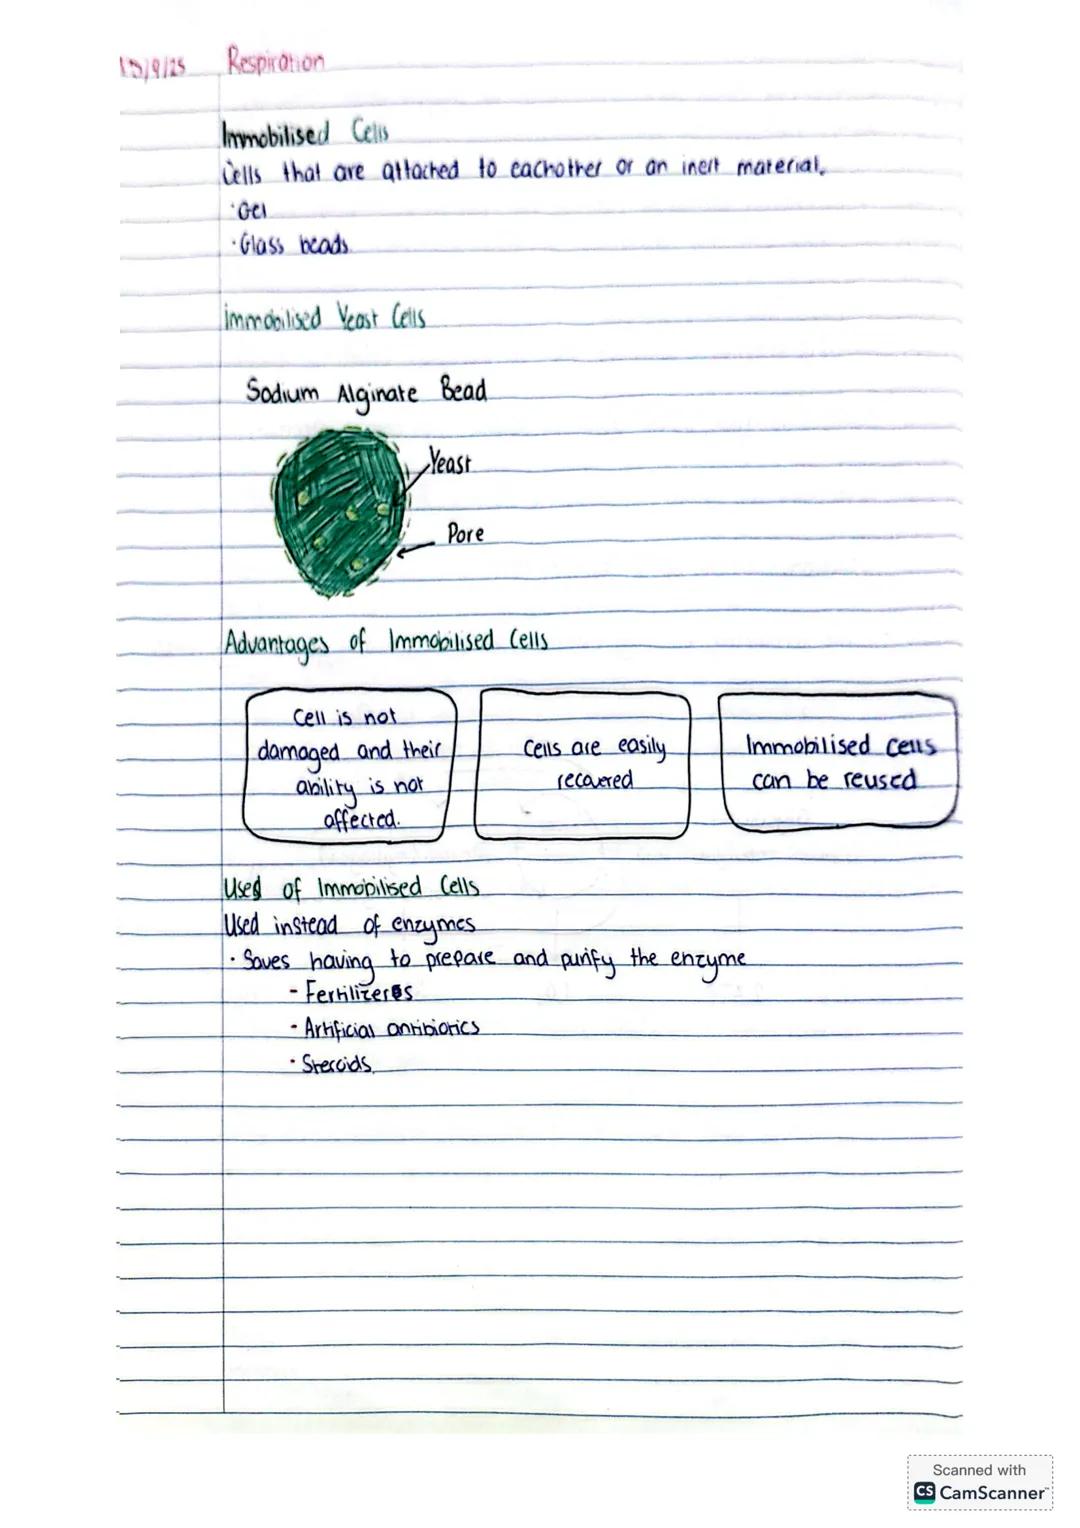 15/9/25 Respiration
Immobilised Cells
Cells that are attached to eachother or an inert material.
· Gel
· Glass beads.
immobilised Yeast Cells
Sodium Alginate Bead
Yeast
Pore
Advantages of Immobilised Cells
Cell is not
damaged and their
ability is not
affected.
Cells are easily
recovered
Immobilised cells
can be reused
Used of Immobilised Cells
Used instead of enzymes
· Saves having to prepare and purify the enzyme
- Fertilizers
- Artificial antibiotics
· Steroids.
Scanned with
CS CamScanner